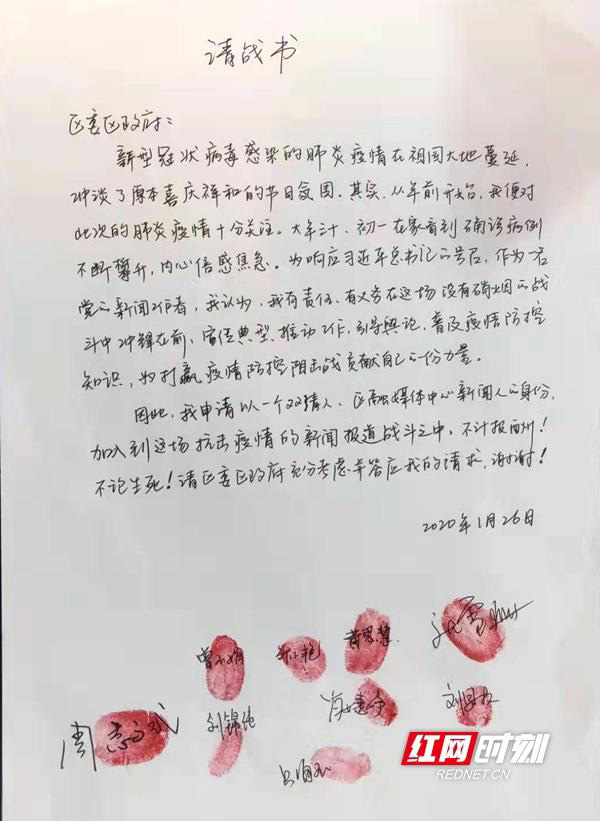 请战书
区委区政府：
新型冠状病毒感染的肺炎疫情在祖国大地蔓延，
冲淡了原本喜庆祥和的节日氛围。其实，从年前开始，我便对
此次的肺炎疫情十分关注。大年三十、初一在家看到确诊病例
不断攀升，内心倍感焦急。为响应习近平总书记的号召，作为一名
党的新闻工作者，我认为，我有责任、有义务在这场没有硝烟的战
斗中冲锋在前，宣传典型、推动工作，引导舆论，普及疫情防控
知识，为打赢疫情防控阻击战贡献自己的一份力量。
因此，我申请以一个双清人、区融媒体中心新闻人的身份，
加入到这场抗击疫情的新闻报道战斗之中，不计报酬！
不论生死！请区委区政府充分考虑并答应我的请求，谢谢！
2020年1月26日
黄思慧
刘锦纯
红网时刻
REDNET.CN